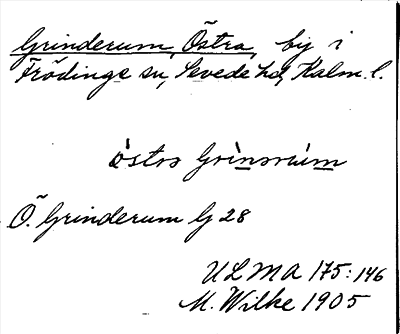 Grinderum, Östra, by i
Frödinge sn, Sevede hd, Kalm. l.
östra Grìnərúm
Ö. Grinderum G 28
ULMA 175:146
M. Wilke 1905